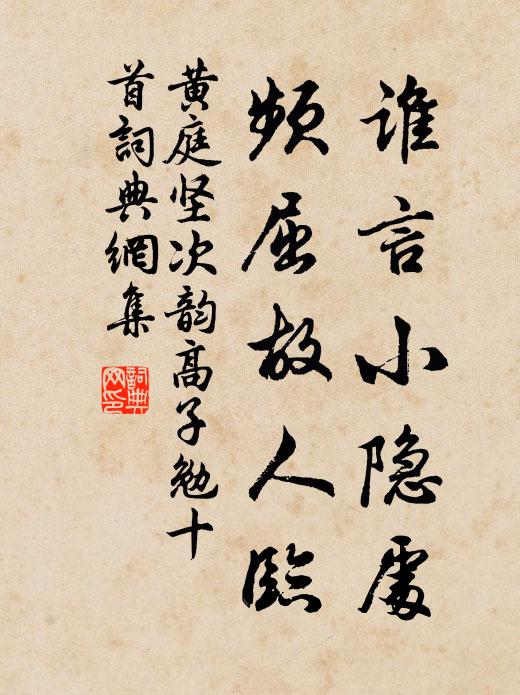 谁言小隐處
频屈故人臨
黄庭坚次韵高子勉十
首詞典網集
詞典
网印